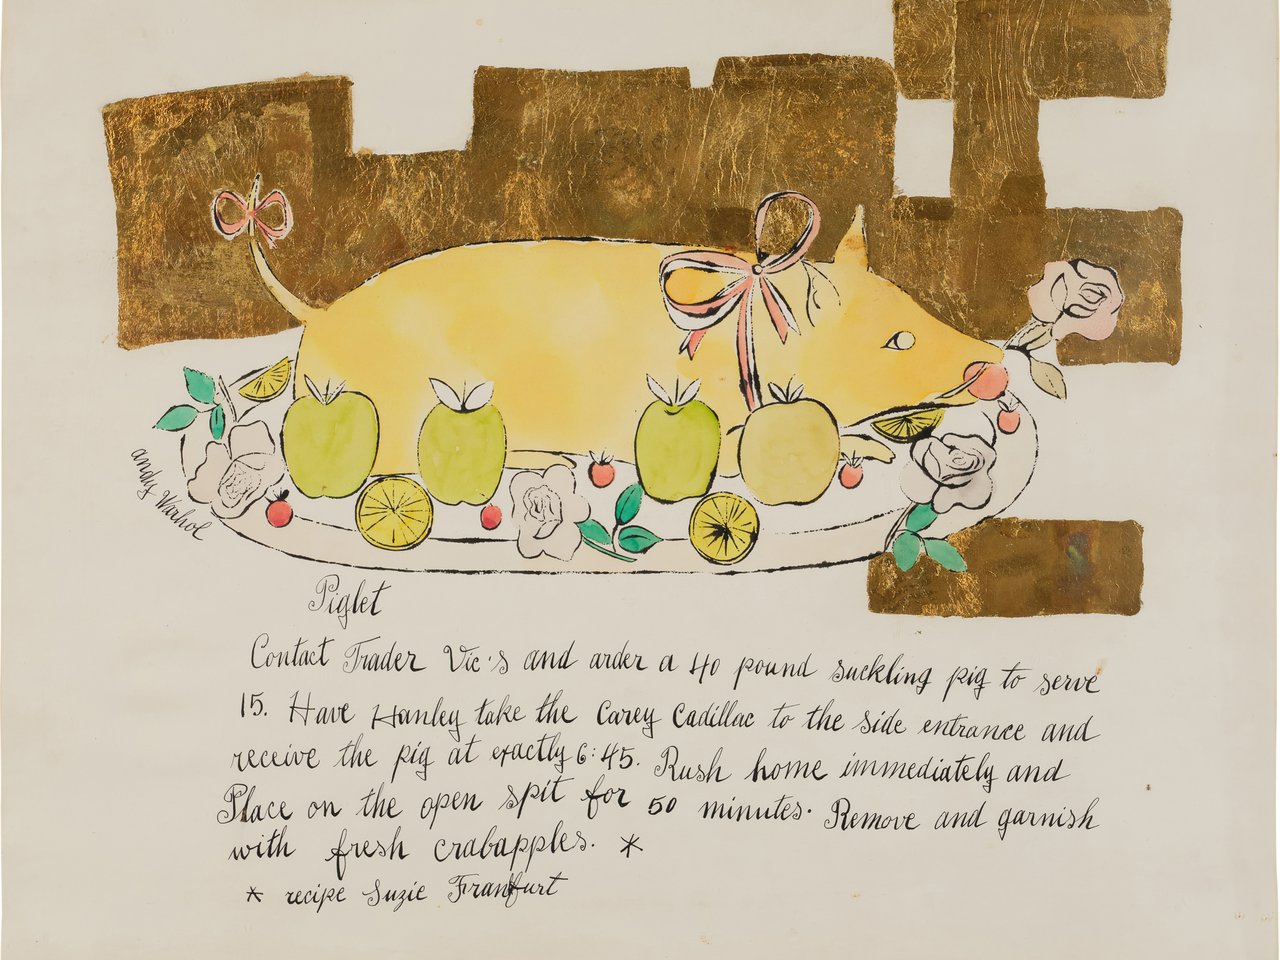 andy Warhol
Piglet
Contact Trader Vic's and arder a 40 pound suckling pig to serve
15. Have Hanley take the Carey Cadillac to the side entrance and
receive the pig at exactly 6:45. Rush home immediately and
Place on the open spit for 50 minutes. Remove and garnish
with fresh crabapples. *
* recipe Suzie Franfurt